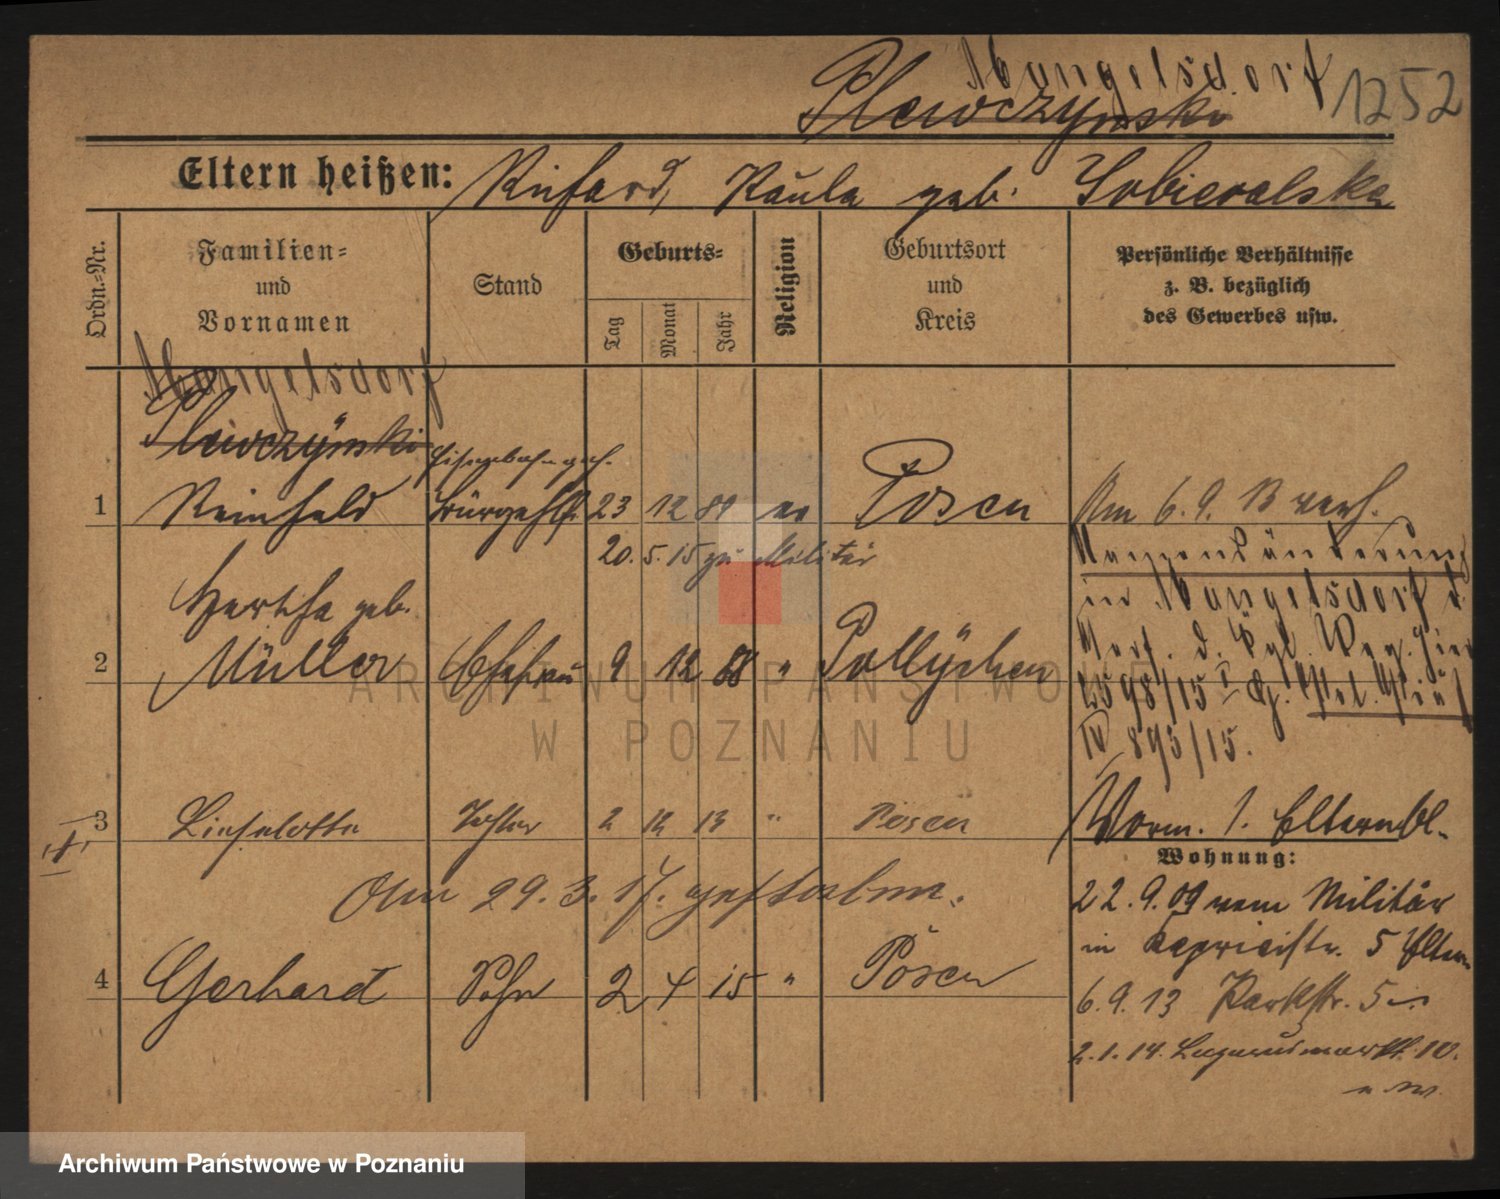 Mangelsdorf 1252
Plewczynski
Eltern heißen: Richard, Paula geb. Sobieralska
Ordn.-Nr.
Familien-
und
Vornamen
Stand
Geburts-
Tag
Monat
Jahr
Religion
Geburtsort
und
Kreis
Persönliche Verhältnisse
z. B. bezüglich
des Gewerbes usw.
Mangelsdorf
Plewczynski
1 Reinhold 23 12 ev Posen
Am 6.9.13 verh.
20.5.15 zu Militär
Namensänderung
in Mangelsdorf d.
Hertha geb.
2 Müller Ehefrau 9 12 88 " Pollychen
IV 895/15.
3 Lieselotte Tochter 2 12 13 " Posen
Vorm. 1. Elternbl.
Wohnung:
Am 29.3.17. gestorben.
22.9.09 vom Militär
in 5 Eltern
4 Gerhard Sohn 2 4 15 " Posen
6.9.13 Parkstr. 5
2.1.14. Lazarusmarkt 10.
ARCHIWUM PAŃSTWOWE
W POZNANIU
Archiwum Państwowe w Poznaniu